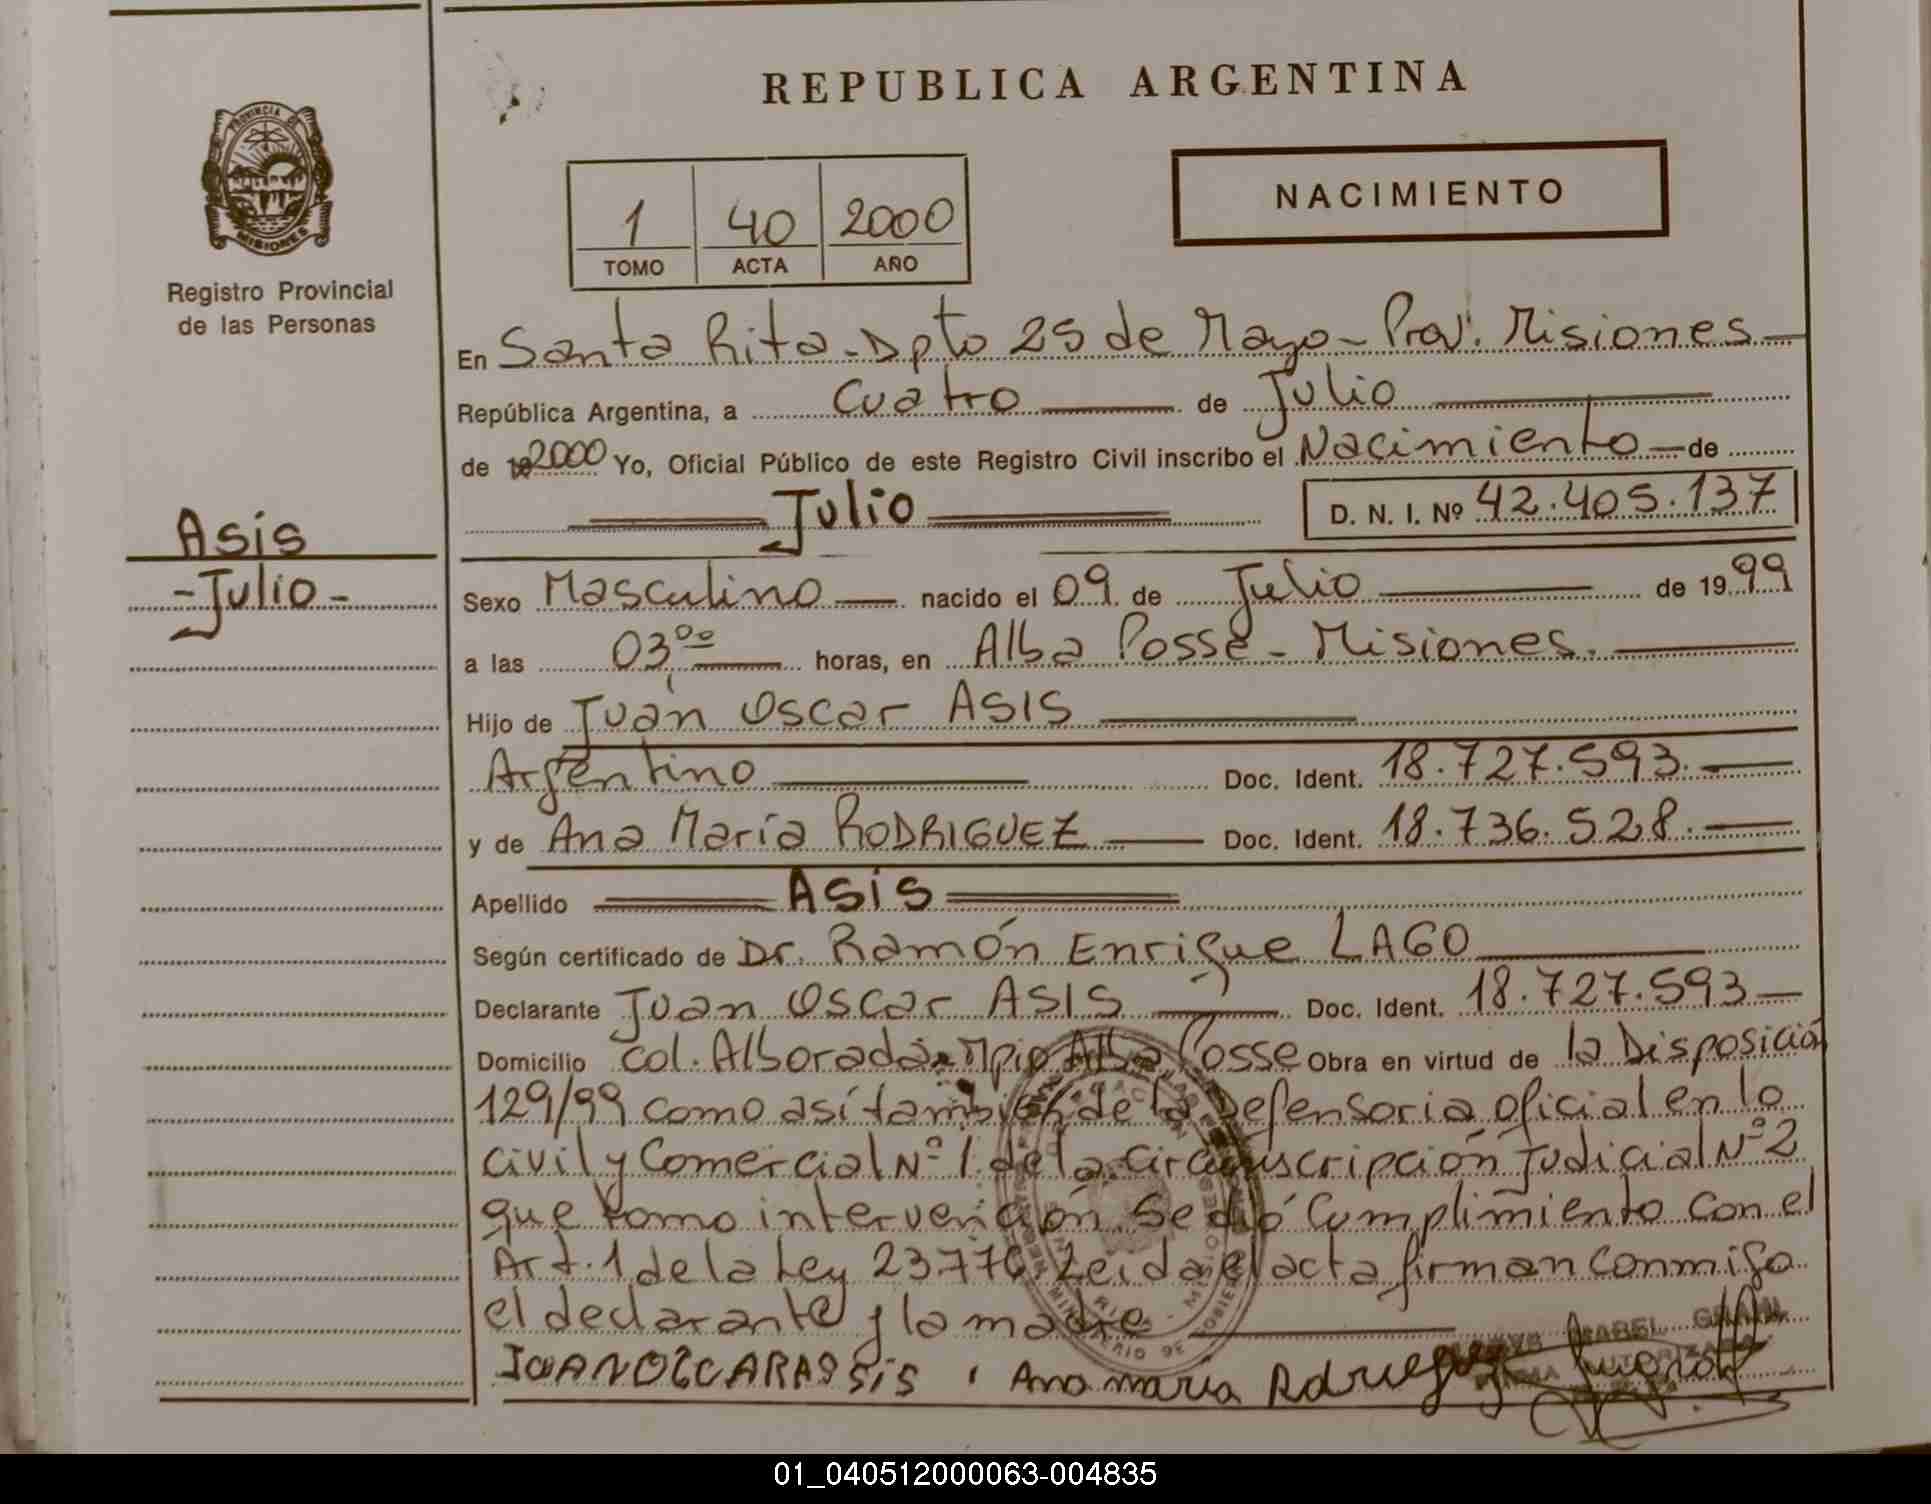 REPUBLICA ARGENTINA
PROVINCIA DE
MISIONES
Registro Provincial
de las Personas
1 40 2000
TOMO ACTA AÑO
NACIMIENTO
En Santa Rita - Dpto 25 de Mayo - Prov. Misiones
República Argentina, a cuatro de Julio
de 2000 Yo, Oficial Público de este Registro Civil inscribo el Nacimiento de
Julio D. N. I. Nº 42.405.137
Asís
- Julio -
Sexo Masculino nacido el 09 de Julio de 1999
a las 03,00 horas, en Alba Posse - Misiones.
Hijo de Juan Oscar ASIS
Argentino Doc. Ident. 18.727.593.
y de Ana María RODRIGUEZ Doc. Ident. 18.736.528.
Apellido Asís
Según certificado de Dr. Ramón Enrique LAGO
Declarante Juan Oscar ASIS Doc. Ident. 18.727.593
Domicilio Col. Alborada Mpio Alba Posse Obra en virtud de la Disposición
129/99 como así también de la Defensoria oficial en lo
civil y Comercial Nº 1 de la Circunscripción Judicial Nº 2
que tomo intervención. Se dió Cumplimiento con el
Art. 1 de la Ley 23776. Leida el acta firman conmigo
el declarante y la madre
JOANOSCARASSiS Ana maria Rdrueguez
01_040512000063-004835